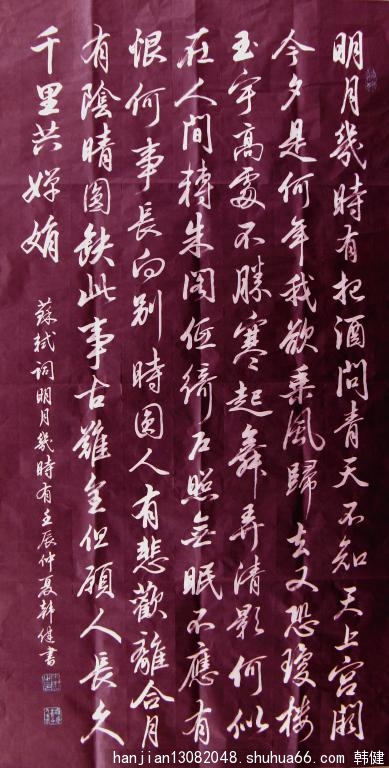 明月幾時有把酒問青天不知天上宮闕
今夕是何年我欲乘風歸去又恐瓊樓
玉宇高處不勝寒起舞弄清影何似
在人間轉朱閣低綺戶照無眠不應有
恨何事長向別時圓人有悲歡離合月
有陰晴圓缺此事古難全但願人長久
千里共嬋娟
蘇軾詞明月幾時有壬辰仲夏韓健書
hanjian13082048.shuhua66.com 韩健